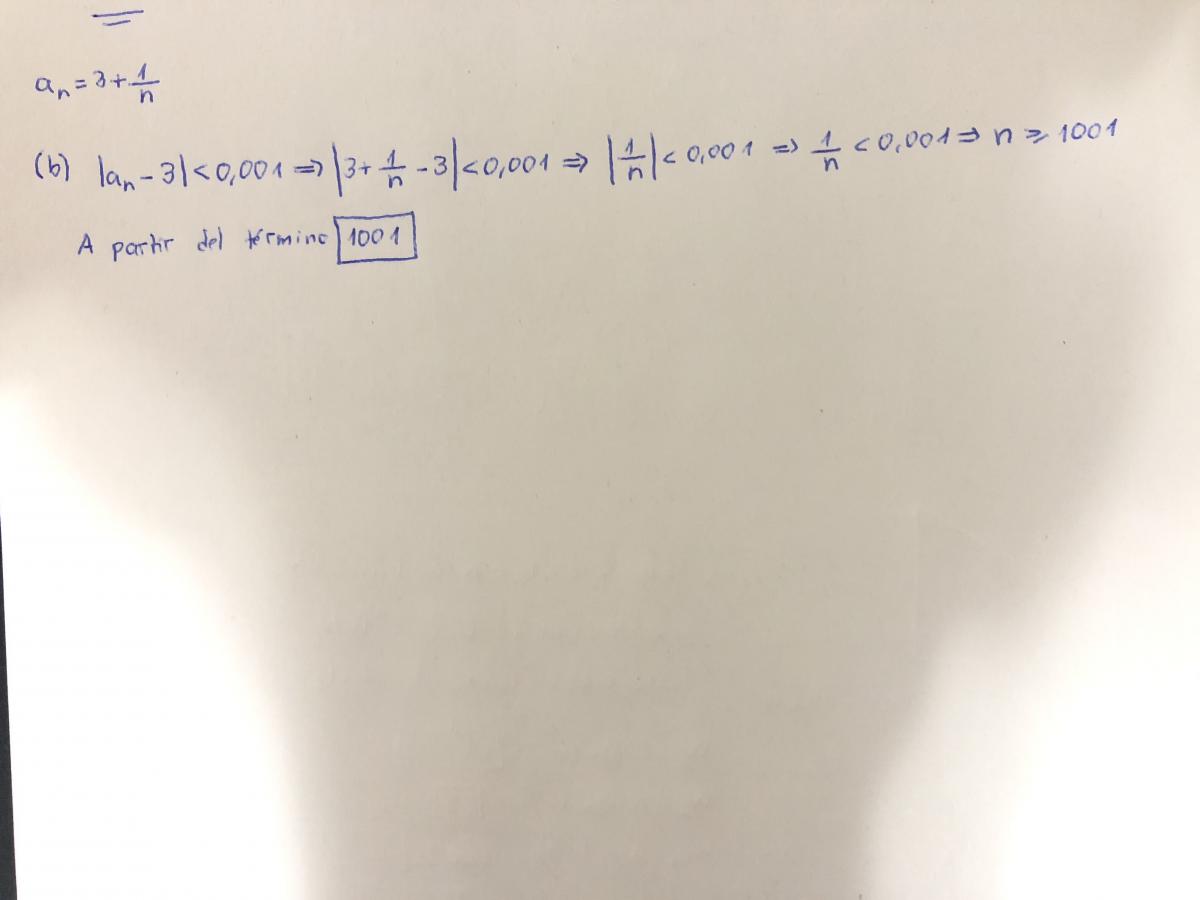 aₙ = 3 + 1/n
(b) |aₙ - 3| < 0,001 ⇒ |3 + 1/n - 3| < 0,001 ⇒ |1/n| < 0,001 ⇒ 1/n < 0,001 ⇒ n ⩾ 1001
A partir del término 1001